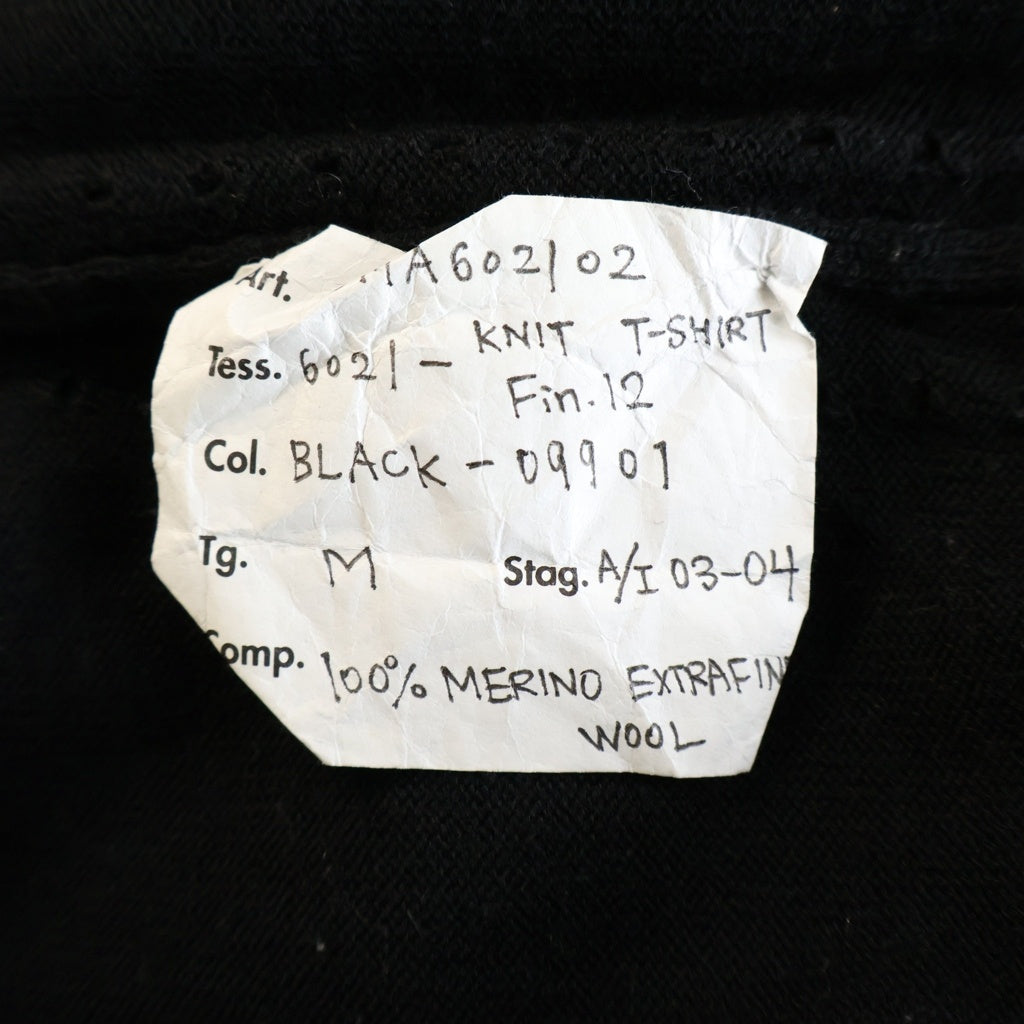 Art. A602102
Tess. 6021 - KNIT T-SHIRT
Fin. 12
Col. BLACK - 09901
Tg. M Stag. A/I 03-04
Comp. 100% MERINO EXTRAFIN
WOOL